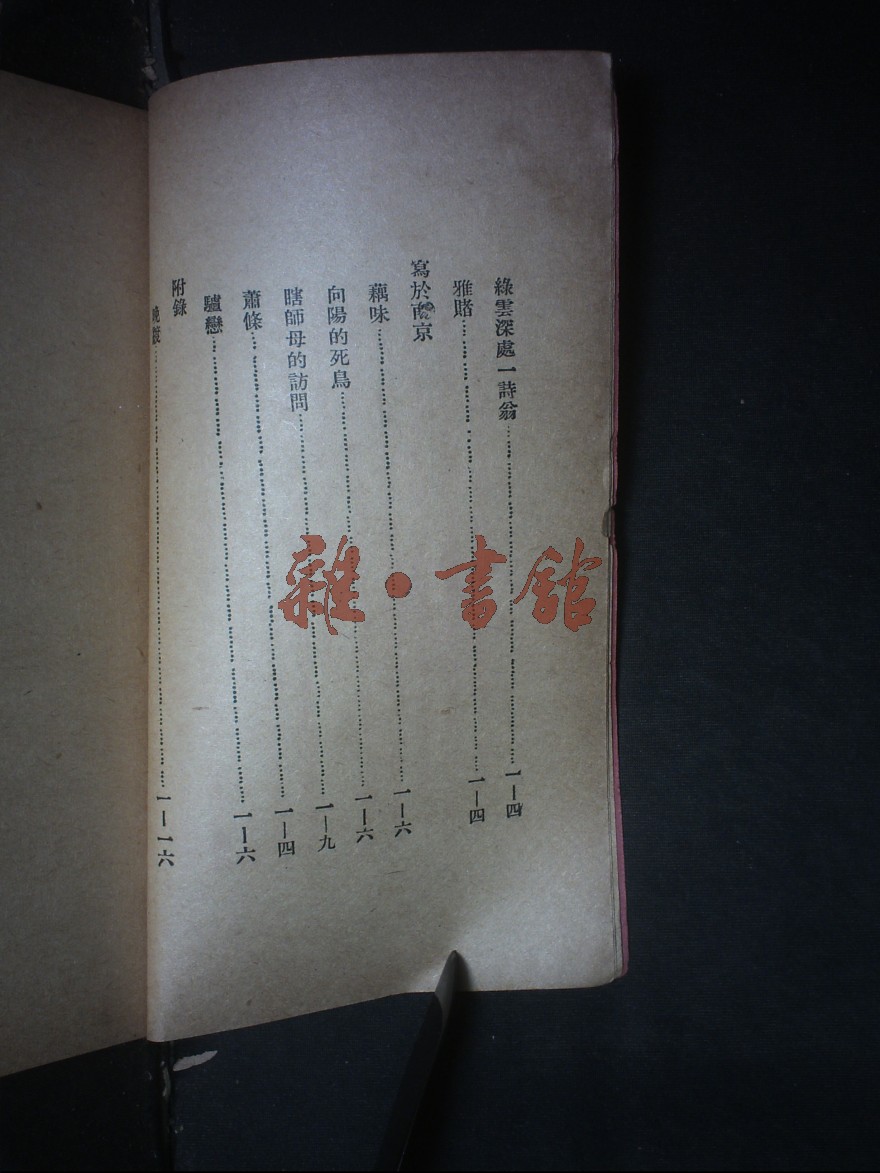 綠雲深處一詩翁……一—四
雅賭……一—四
寫於南京
藕味……一—六
向陽的死鳥……一—六
瞎師母的訪問……一—九
蕭條……一—四
驢戀……一—六
附錄
晚渡……一—一六
雜·書館